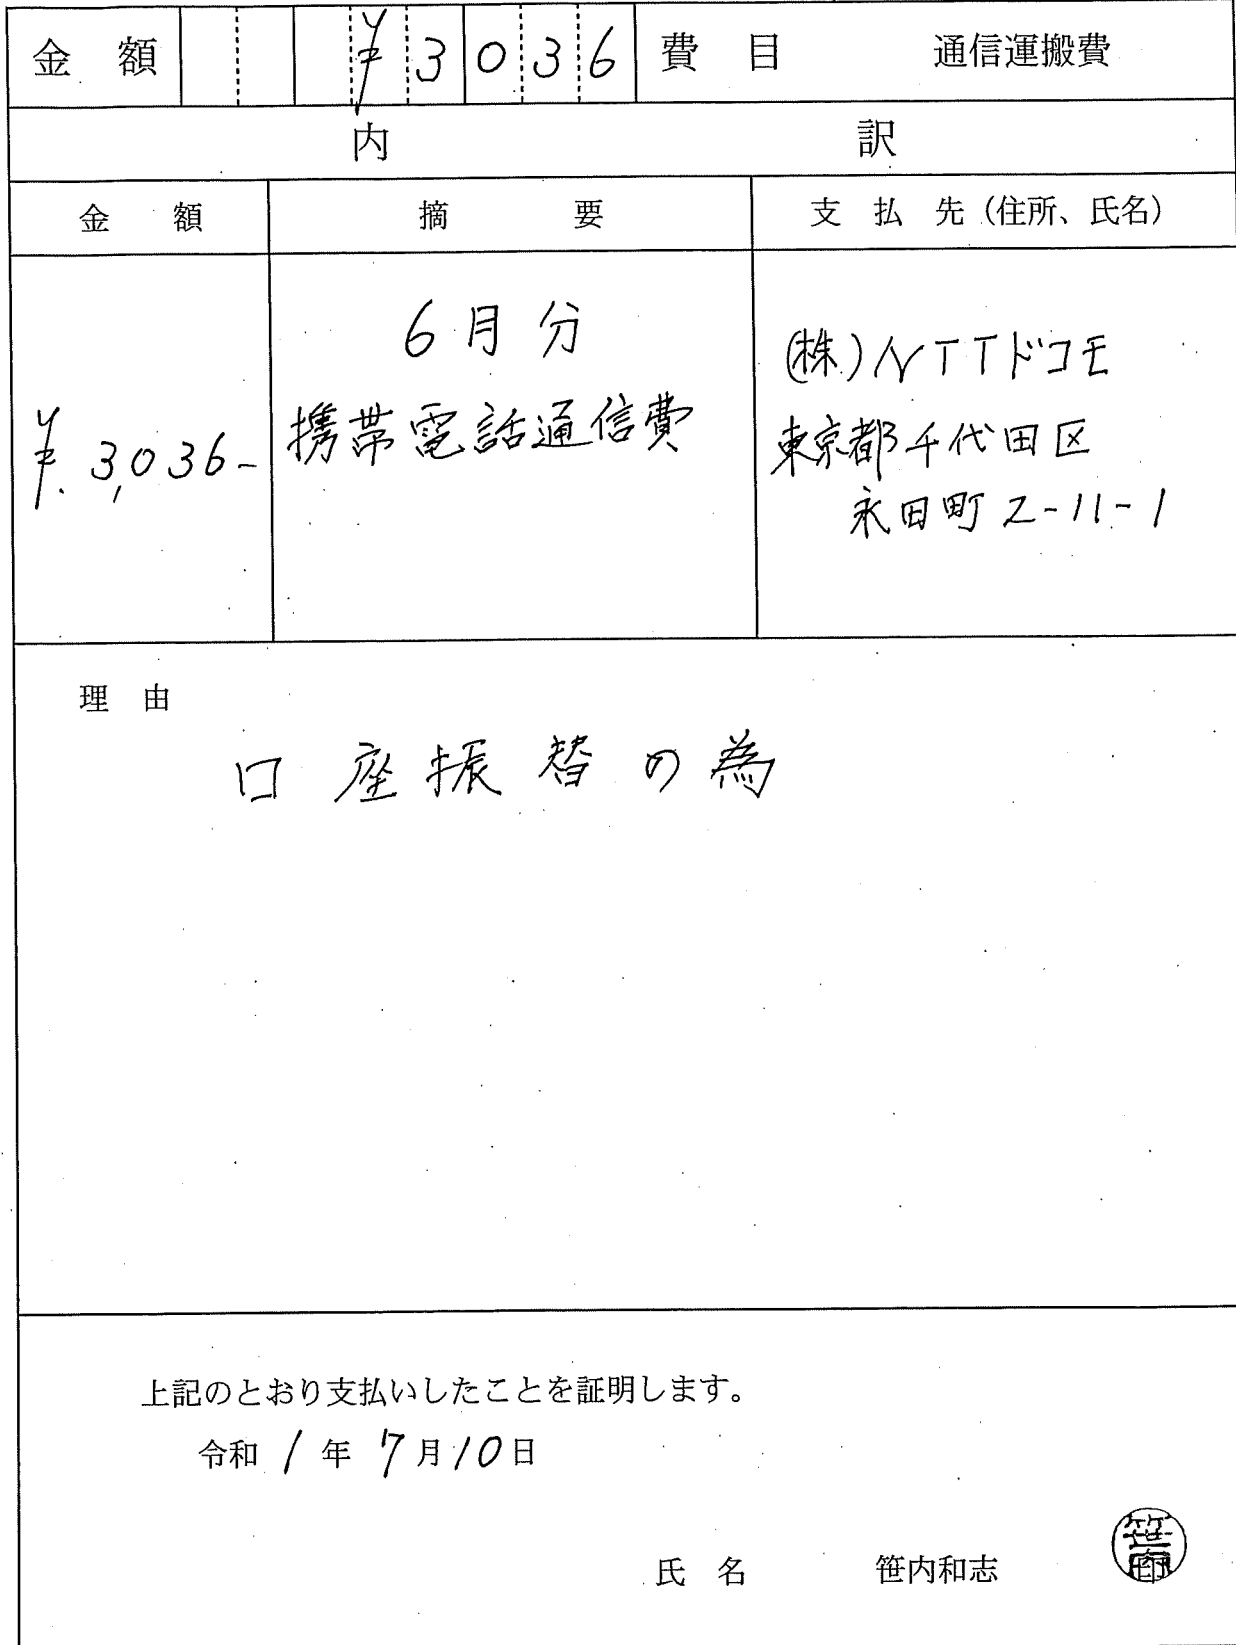 金 額 ¥3036 費 目 通信運搬費
内 訳
金 額 摘 要 支 払 先（住所、氏名）
6月分
携帯電話通信費
¥.3,036-
(株)NTTドコモ
東京都千代田区
永田町2-11-1
理 由
口座振替の為
上記のとおり支払いしたことを証明します。
令和 1 年 7 月 10 日
氏 名 笹内和志